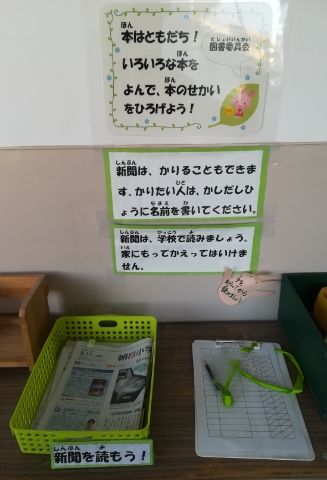 本はともだち！
図書委員会
いろいろな本を
よんで、本のせかい
をひろげよう！
新聞は、かりることもできま
す。かりたい人は、かしだしひ
ょうに名前を書いてください。
新聞は、学校で読みましょう。
家にもってかえってはいけま
せん。
朝日小
新聞を読もう！